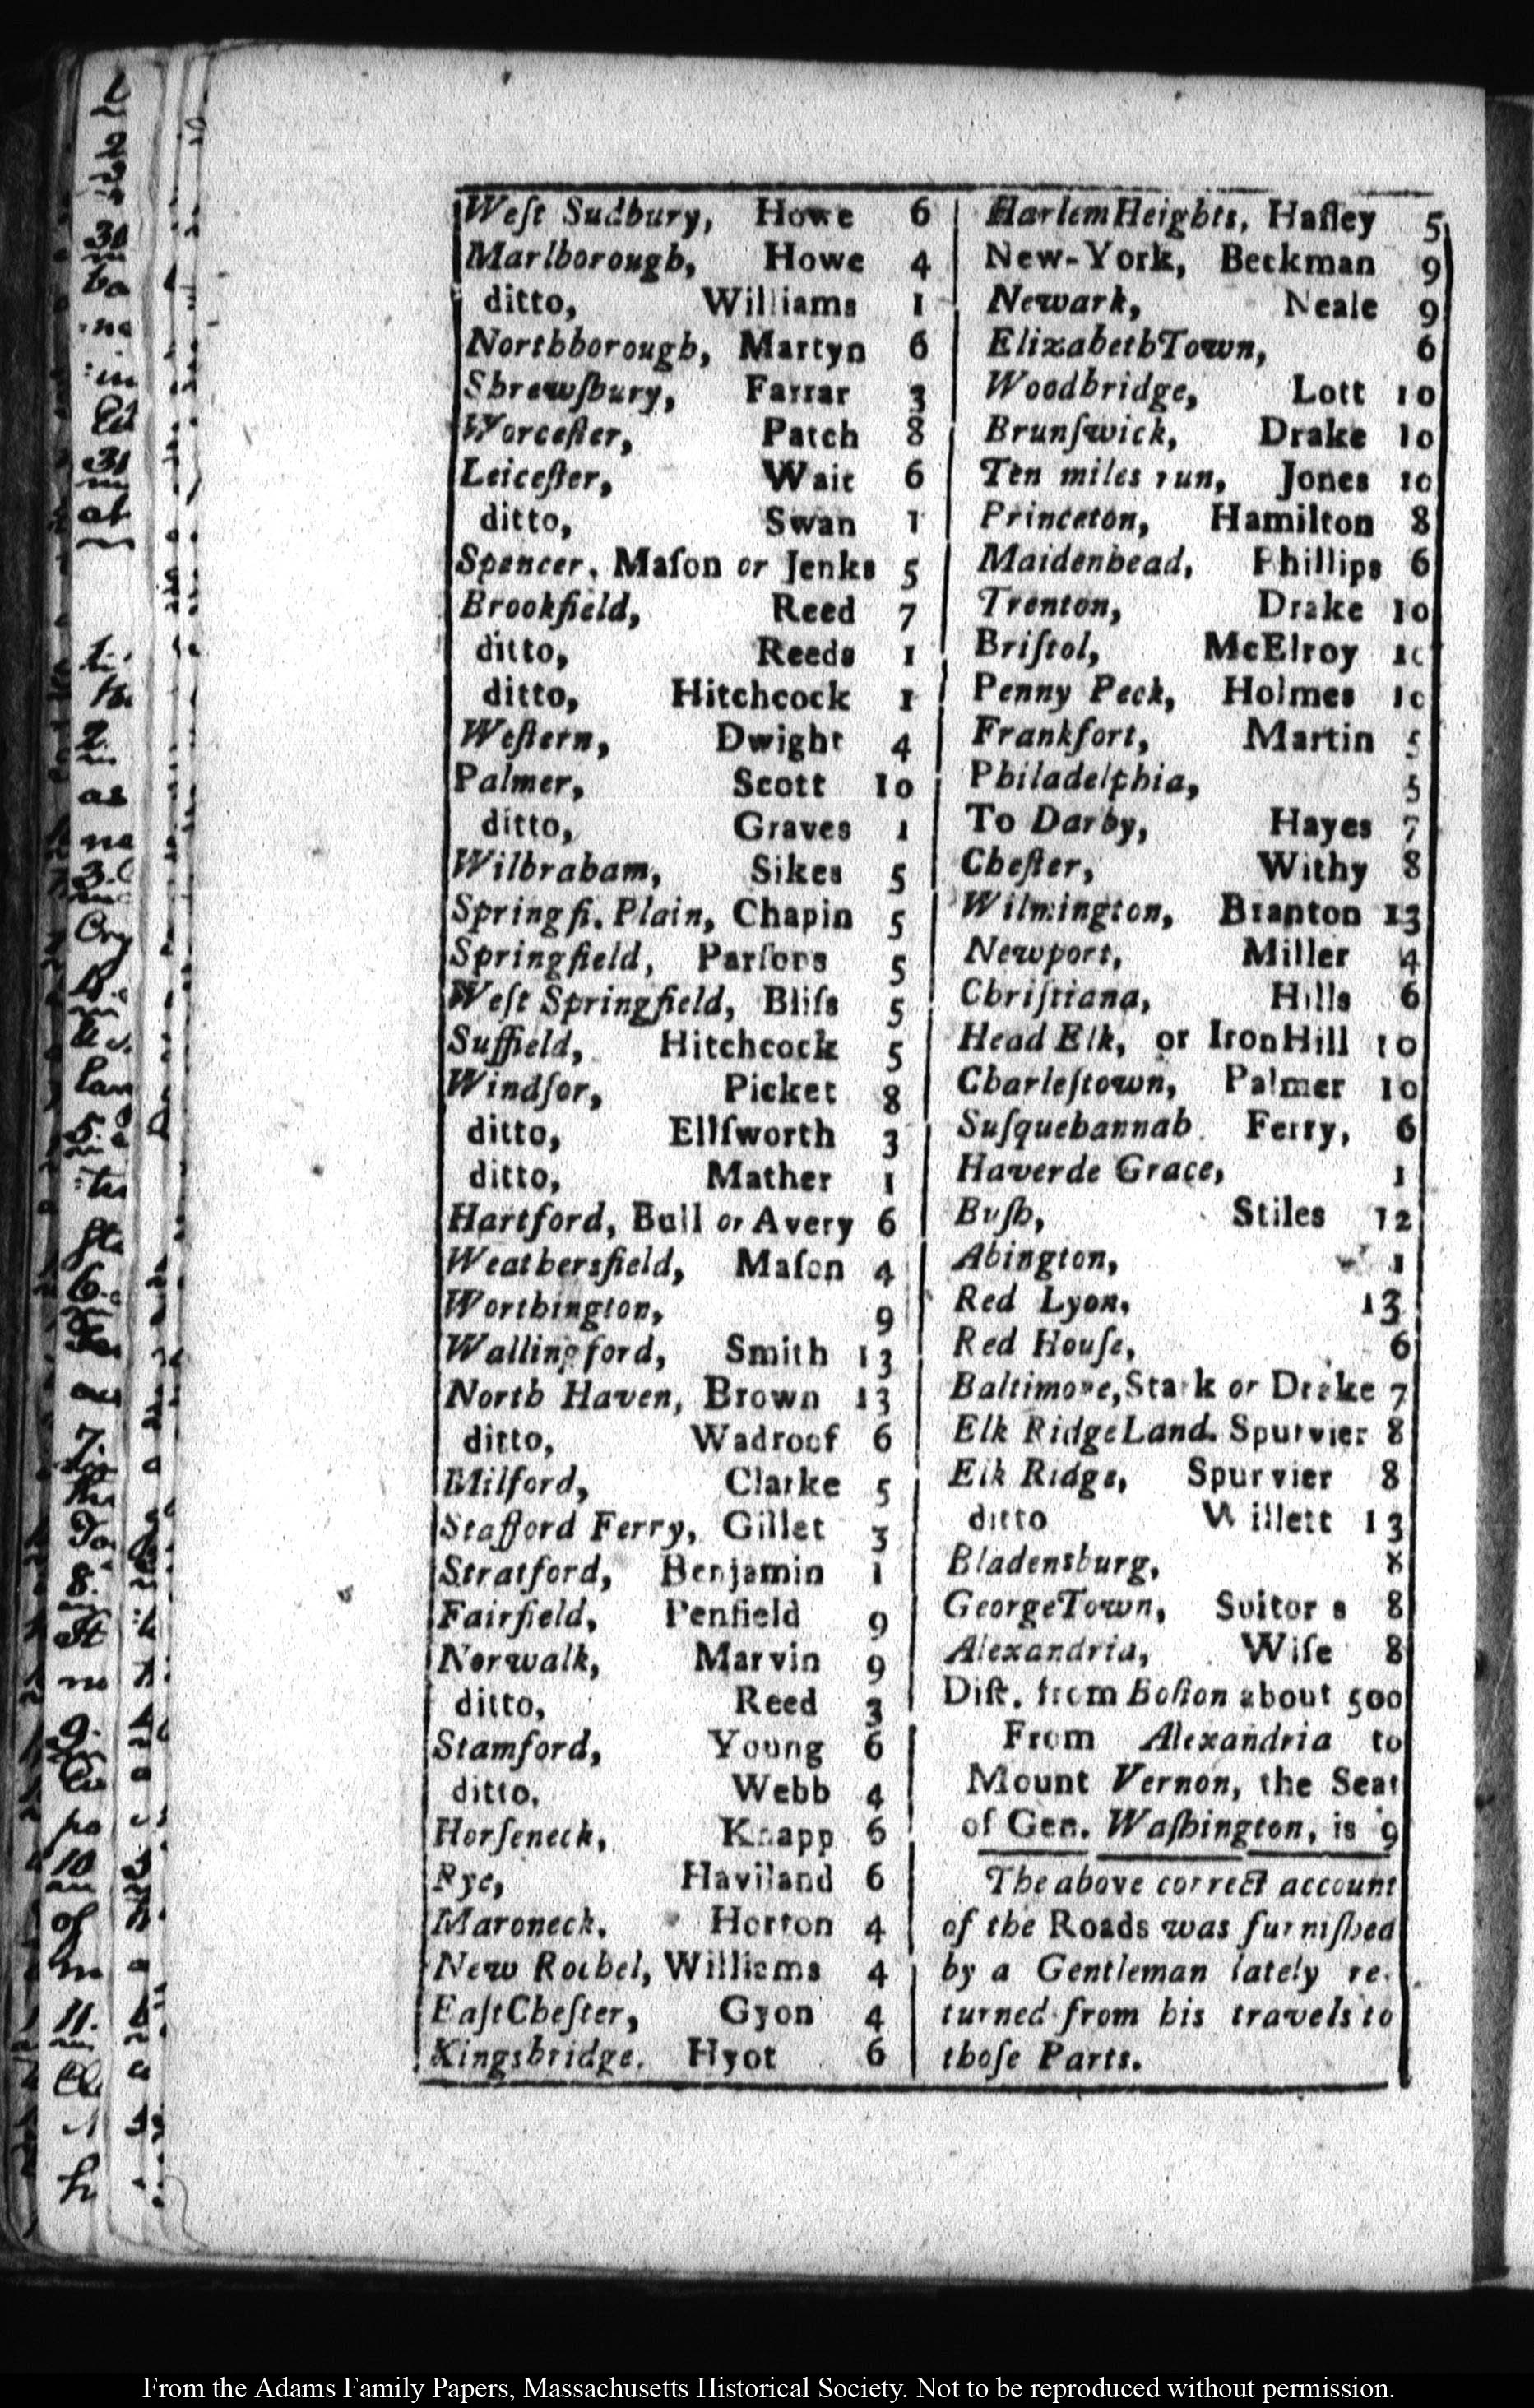 Weſt Sudbury, Howe 6
Marlborough, Howe 4
ditto, Williams 1
Northborough, Martyn 6
Shrewſbury, Farrar 3
Worceſter, Patch 8
Leiceſter, Wait 6
ditto, Swan 1
Spencer, Maſon or Jenks 5
Brookfield, Reed 7
ditto, Reeds 1
ditto, Hitchcock 1
Weſtern, Dwight 4
Palmer, Scott 10
ditto, Graves 1
Wilbraham, Sikes 5
Springfi. Plain, Chapin 5
Springfield, Parſons 5
Weſt Springfield, Bliſs 5
Suffield, Hitchcock 5
Windſor, Picket 8
ditto, Ellſworth 3
ditto, Mather 1
Hartford, Bull or Avery 6
Weathersfield, Maſon 4
Worthington, 9
Wallingford, Smith 13
North Haven, Brown 13
ditto, Wadroof 6
Milford, Clarke 5
Stafford Ferry, Gillet 3
Stratford, Benjamin 1
Fairfield, Penfield 9
Norwalk, Marvin 9
ditto, Reed 3
Stamford, Young 6
ditto, Webb 4
Horſeneck, Knapp 6
Rye, Haviland 6
Maroneck, Horton 4
New Rochel, Williams 4
Eaſt Cheſter, Gyon 4
Kingsbridge. Hyot 6
Harlem Heights, Hafley 5
New-York, Beekman 9
Newark, Neale 9
Elizabeth Town, 6
Woodbridge, Lott 10
Brunſwick, Drake 10
Ten miles run, Jones 10
Princeton, Hamilton 8
Maidenhead, Phillips 6
Trenton, Drake 10
Briſtol, McElroy 10
Penny Peck, Holmes 10
Frankfort, Martin 5
Philadelphia, 5
To Darby, Hayes 7
Cheſter, Withy 8
Wilmington, Branton 13
Newport, Miller 4
Chriſtiana, Hills 6
Head Elk, or Iron Hill 10
Charleſtown, Palmer 10
Suſquehannah Ferry, 6
Haverde Grace, 1
Buſh, Stiles 12
Abington, 1
Red Lyon, 13
Red Houſe, 6
Baltimore, Stark or Drake 7
Elk Ridge Land. Spurvier 8
Elk Ridge, Spurvier 8
ditto Willett 13
Bladensburg, 8
George Town, Suitors 8
Alexandria, Wiſe 8
Diſt. from Boſton about 500
From Alexandria to
Mount Vernon, the Seat
of Gen. Waſhington, is 9
The above correct account
of the Roads was furniſhed
by a Gentleman lately re-
turned from his travels to
thoſe Parts.
From the Adams Family Papers, Massachusetts Historical Society. Not to be reproduced without permission.